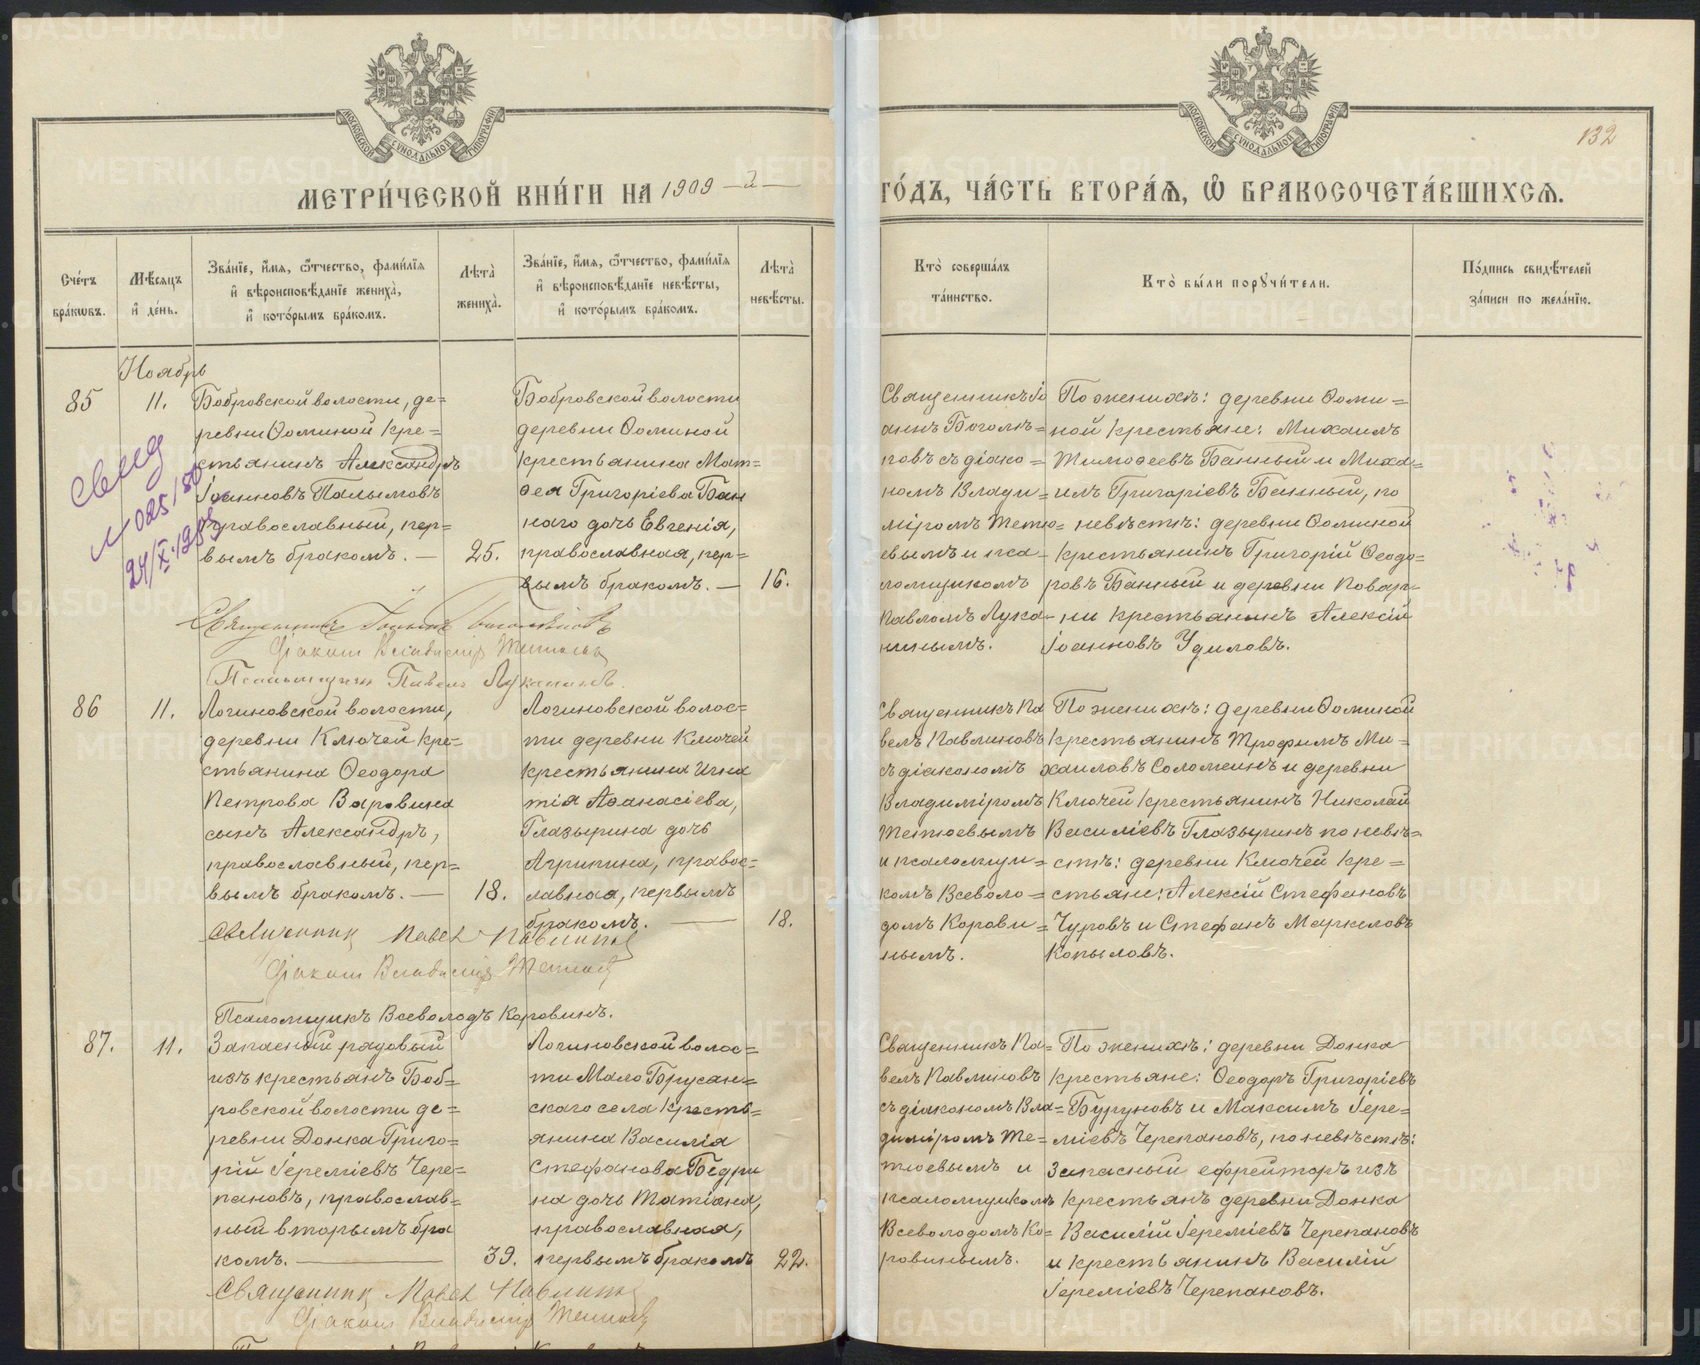 132
МЕТРИ́ЧЕСКОЙ КНИ́ГИ НА 1909 -й-
ГО́ДЪ, ЧА́СТЬ ВТОРА́Я, Ѡ БРАКОСОЧЕТА́ВШИХСЯ.
Сче́тъ бра́кѡвъ.
Мѣ́сяцъ и҆ де́нь.
Зва́нїе, и҆́мя, ѻ҆́тчество, фами́лїя
и҆ вѣроисповѣ́данїе жениха̀,
и҆ кото́рымъ бра́комъ.
Лѣта̀ жениха̀.
Зва́нїе, и҆́мя, ѻ҆́тчество, фами́лїя
и҆ вѣроисповѣ́данїе невѣ́сты,
и҆ кото́рымъ бра́комъ.
Лѣта̀ невѣ́сты.
Кто̀ соверша́лъ
та́инство.
Кто̀ бы́ли порꙋчи́тели.
По́дпись свидѣ́телей
за́писи по жела́нїю.
Ноябрь
85
11.
Бобровской волости, де=
ревни Ѳоминой кре=
стьянинъ Александръ
Іоанновъ Палымовъ
православный, пер=
вымъ бракомъ. —
25.
Бобровской волости
деревни Ѳоминой
крестьянина Мат=
ѳея Григоріева Бан
наго дочь Евгенія,
православная, пер=
вымъ бракомъ. —
16.
Священникъ Іо
аннъ Боголю=
повъ съ діако=
номъ Влади=
міромъ Тетю=
евымъ и пса-
ломщикомъ
Павломъ Лука-
нинымъ.
По женихѣ: деревни Ѳоми=
ной крестьяне: Михаилъ
Тимоѳеевъ Банный и Миха=
илъ Григоріевъ Банный, по
невѣстѣ: деревни Ѳоминой
крестьянинъ Григорій Ѳеодо=
ровъ Банный и деревни Повар-
ни крестьянинъ Алексій
Іоанновъ Удиловъ.
Діаконъ Владиміръ Тетюевъ
Псаломщикъ Павелъ Луканинъ
86
11.
Логиновской волости,
деревни Ключей кре=
стьянина Ѳеодора
Петрова Варовина
сынъ Александръ,
православный, пер=
вымъ бракомъ. —
18.
Логиновской волос=
ти деревни Ключей
крестьянина Игна
тія Аѳанасіева,
Глазырина дочь
Агрипина, правос=
лавная, первымъ
бракомъ. —
18.
Священникъ Па
велъ Павлиновъ
съ діакономъ
Владиміромъ
Тетюевымъ
и псаломщи=
комъ Всеволо=
домъ Корови=
нымъ.
По женихѣ: деревни Ѳоминой
крестьянинъ Трофимъ Ми=
хаиловъ Соломеинъ и деревни
Ключей крестьянинъ Николай
Василіевъ Глазыринъ по невѣ=
стѣ: деревни Ключей кре=
стьяне: Алексій Стефановъ
Чуровъ и Стефанъ Маркеловъ
Копыловъ.
Священникъ Павел Павлиновъ
Діаконъ Владиміръ Тетюевъ
Псаломщикъ Всеволодъ Коровинъ.
87.
11.
Запасный рядовый
изъ крестьянъ Боб=
ровской волости де=
ревни Донка Григо=
рій Іереміевъ Чере=
пановъ, православ=
ный вторымъ бра
комъ. —
39.
Логиновской волос=
ти Мало Брусян=
скаго села кресть=
янина Василія
Стефанова Бедри
на дочь Татіана,
православная,
первымъ бракомъ
22.
Священникъ Па=
велъ Павлиновъ
съ діакономъ Вла=
диміромъ Те=
тюевымъ и
псаломщикомъ
Всеволодомъ Ко=
ровинымъ.
По женихѣ: деревни Донка
крестьяне: Ѳеодоръ Григоріевъ
Буруновъ и Максимъ Іере=
міевъ Черепановъ, по невѣстѣ:
запасный ефрейторъ изъ
крестьянъ деревни Донка
Василій Іереміевъ Черепановъ
и крестьянинъ Василій
Іереміевъ Черепановъ.
Священникъ Павел Павлиновъ
Діаконъ Владиміръ Тетюевъ
METRIKI.GASO-URAL.RU